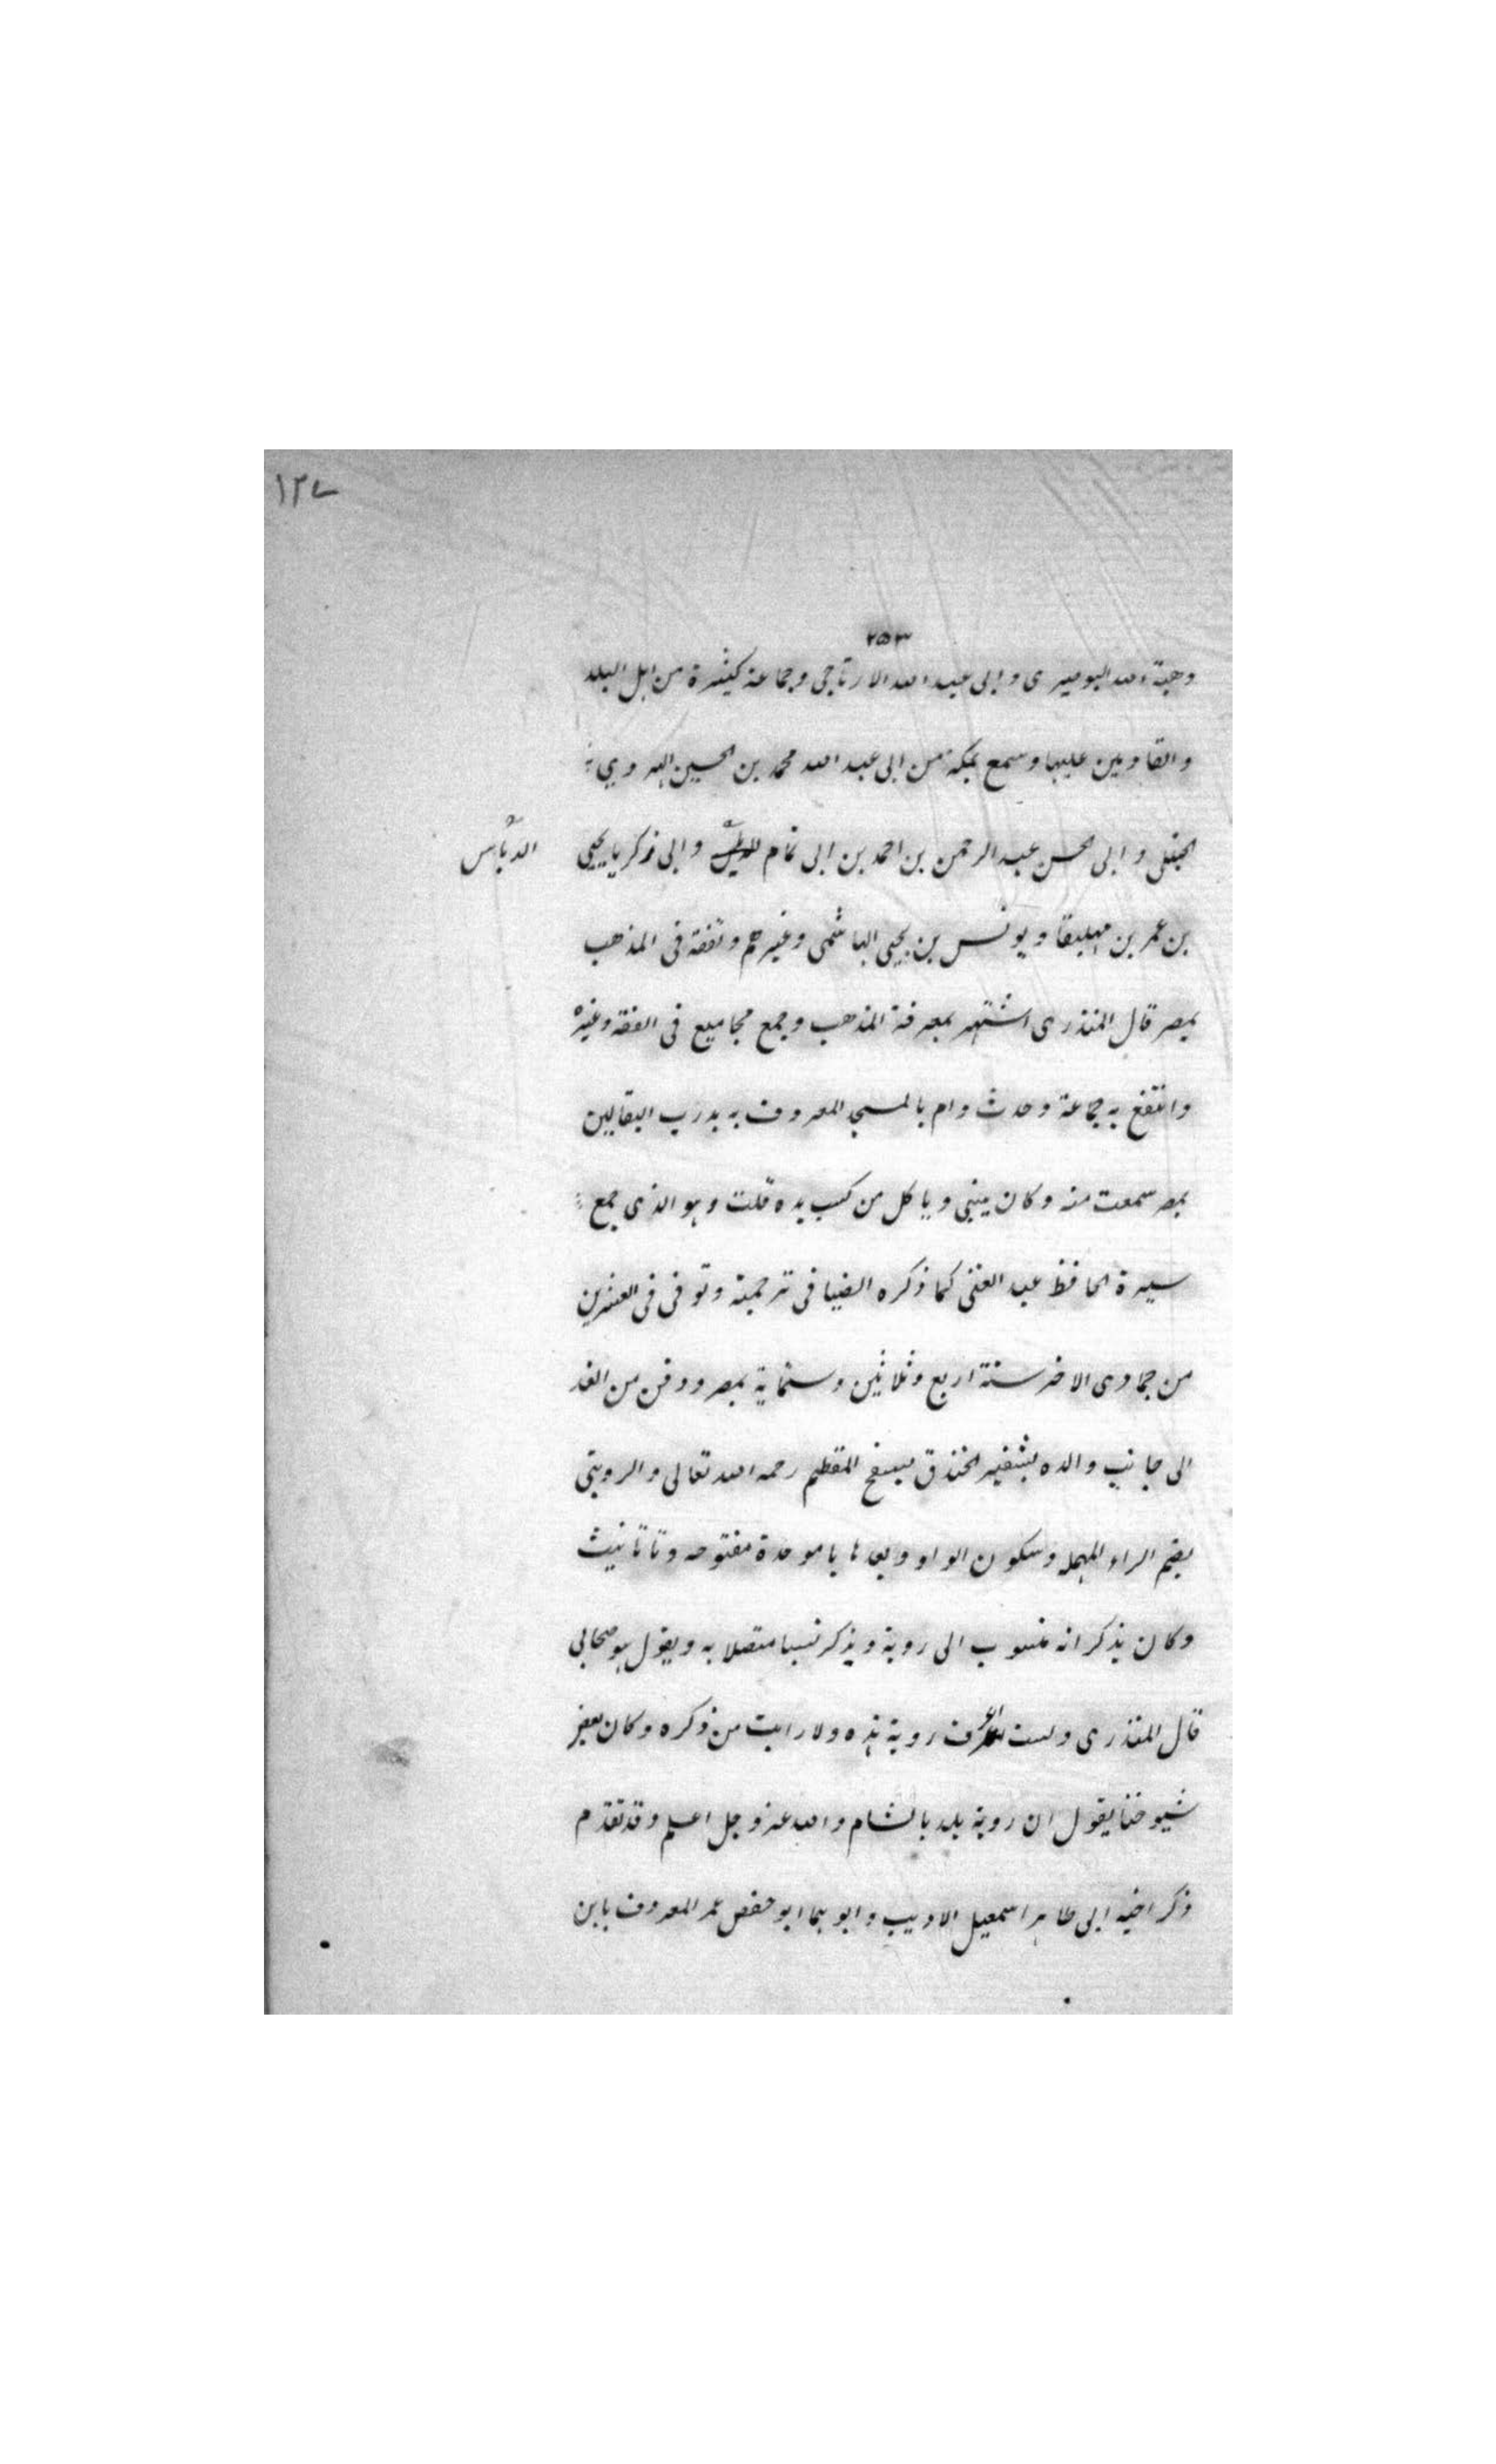 ١٢٧
٢٥٣
وهبة الله البوصيرى وابى عبد الله الارتاجى وجماعة كثيرة من اهل البلد
والقادمين عليها وسمع بمكة من ابى عبد الله محمد بن الحسين الهروي
الحنبلى وابى الحسن عبد الرحمن بن احمد بن ابى تمام وابى زكريا يحيى
الدباس
بن عمر بن بهليقا ويونس بن يحيى الهاشمى وغيرهم وتفقه فى المذهب
بمصر قال المنذرى اشتهر بمعرفة المذهب وجمع مجاميع فى الفقه وغيره
وانتفع به جماعة وحدث وام بالمسجد المعروف به بدرب البقالين
بمصر سمعت منه وكان يبنى وياكل من كسب يده قلت وهو الذى جمع
سيرة الحافظ عبد الغنى كما ذكره الضيا فى ترجمته وتوفى فى العشرين
من جمادى الاخر سنة اربع وثلاثين وستماية بمصر ودفن من الغد
الى جانب والده بشفير الخندق بسفح المقطم رحمه الله تعالى والروبتى
بضم الراء المهمله وسكون الواو وبعدها با موحدة مفتوحه وتا تانيث
وكان يذكر انه منسوب الى روبة ويذكر نسبا متصلا به ويقول هو صحابى
قال المنذرى ولست اعرف روبة هذه ولا رايت من ذكره وكان بعض
شيوخنا يقول ان روبة بلد بالشام والله عز وجل اعلم وقد تقدم
ذكر اخيه ابى طاهر اسمعيل الاديب وابوهما ابو حفص عمر المعروف بابن